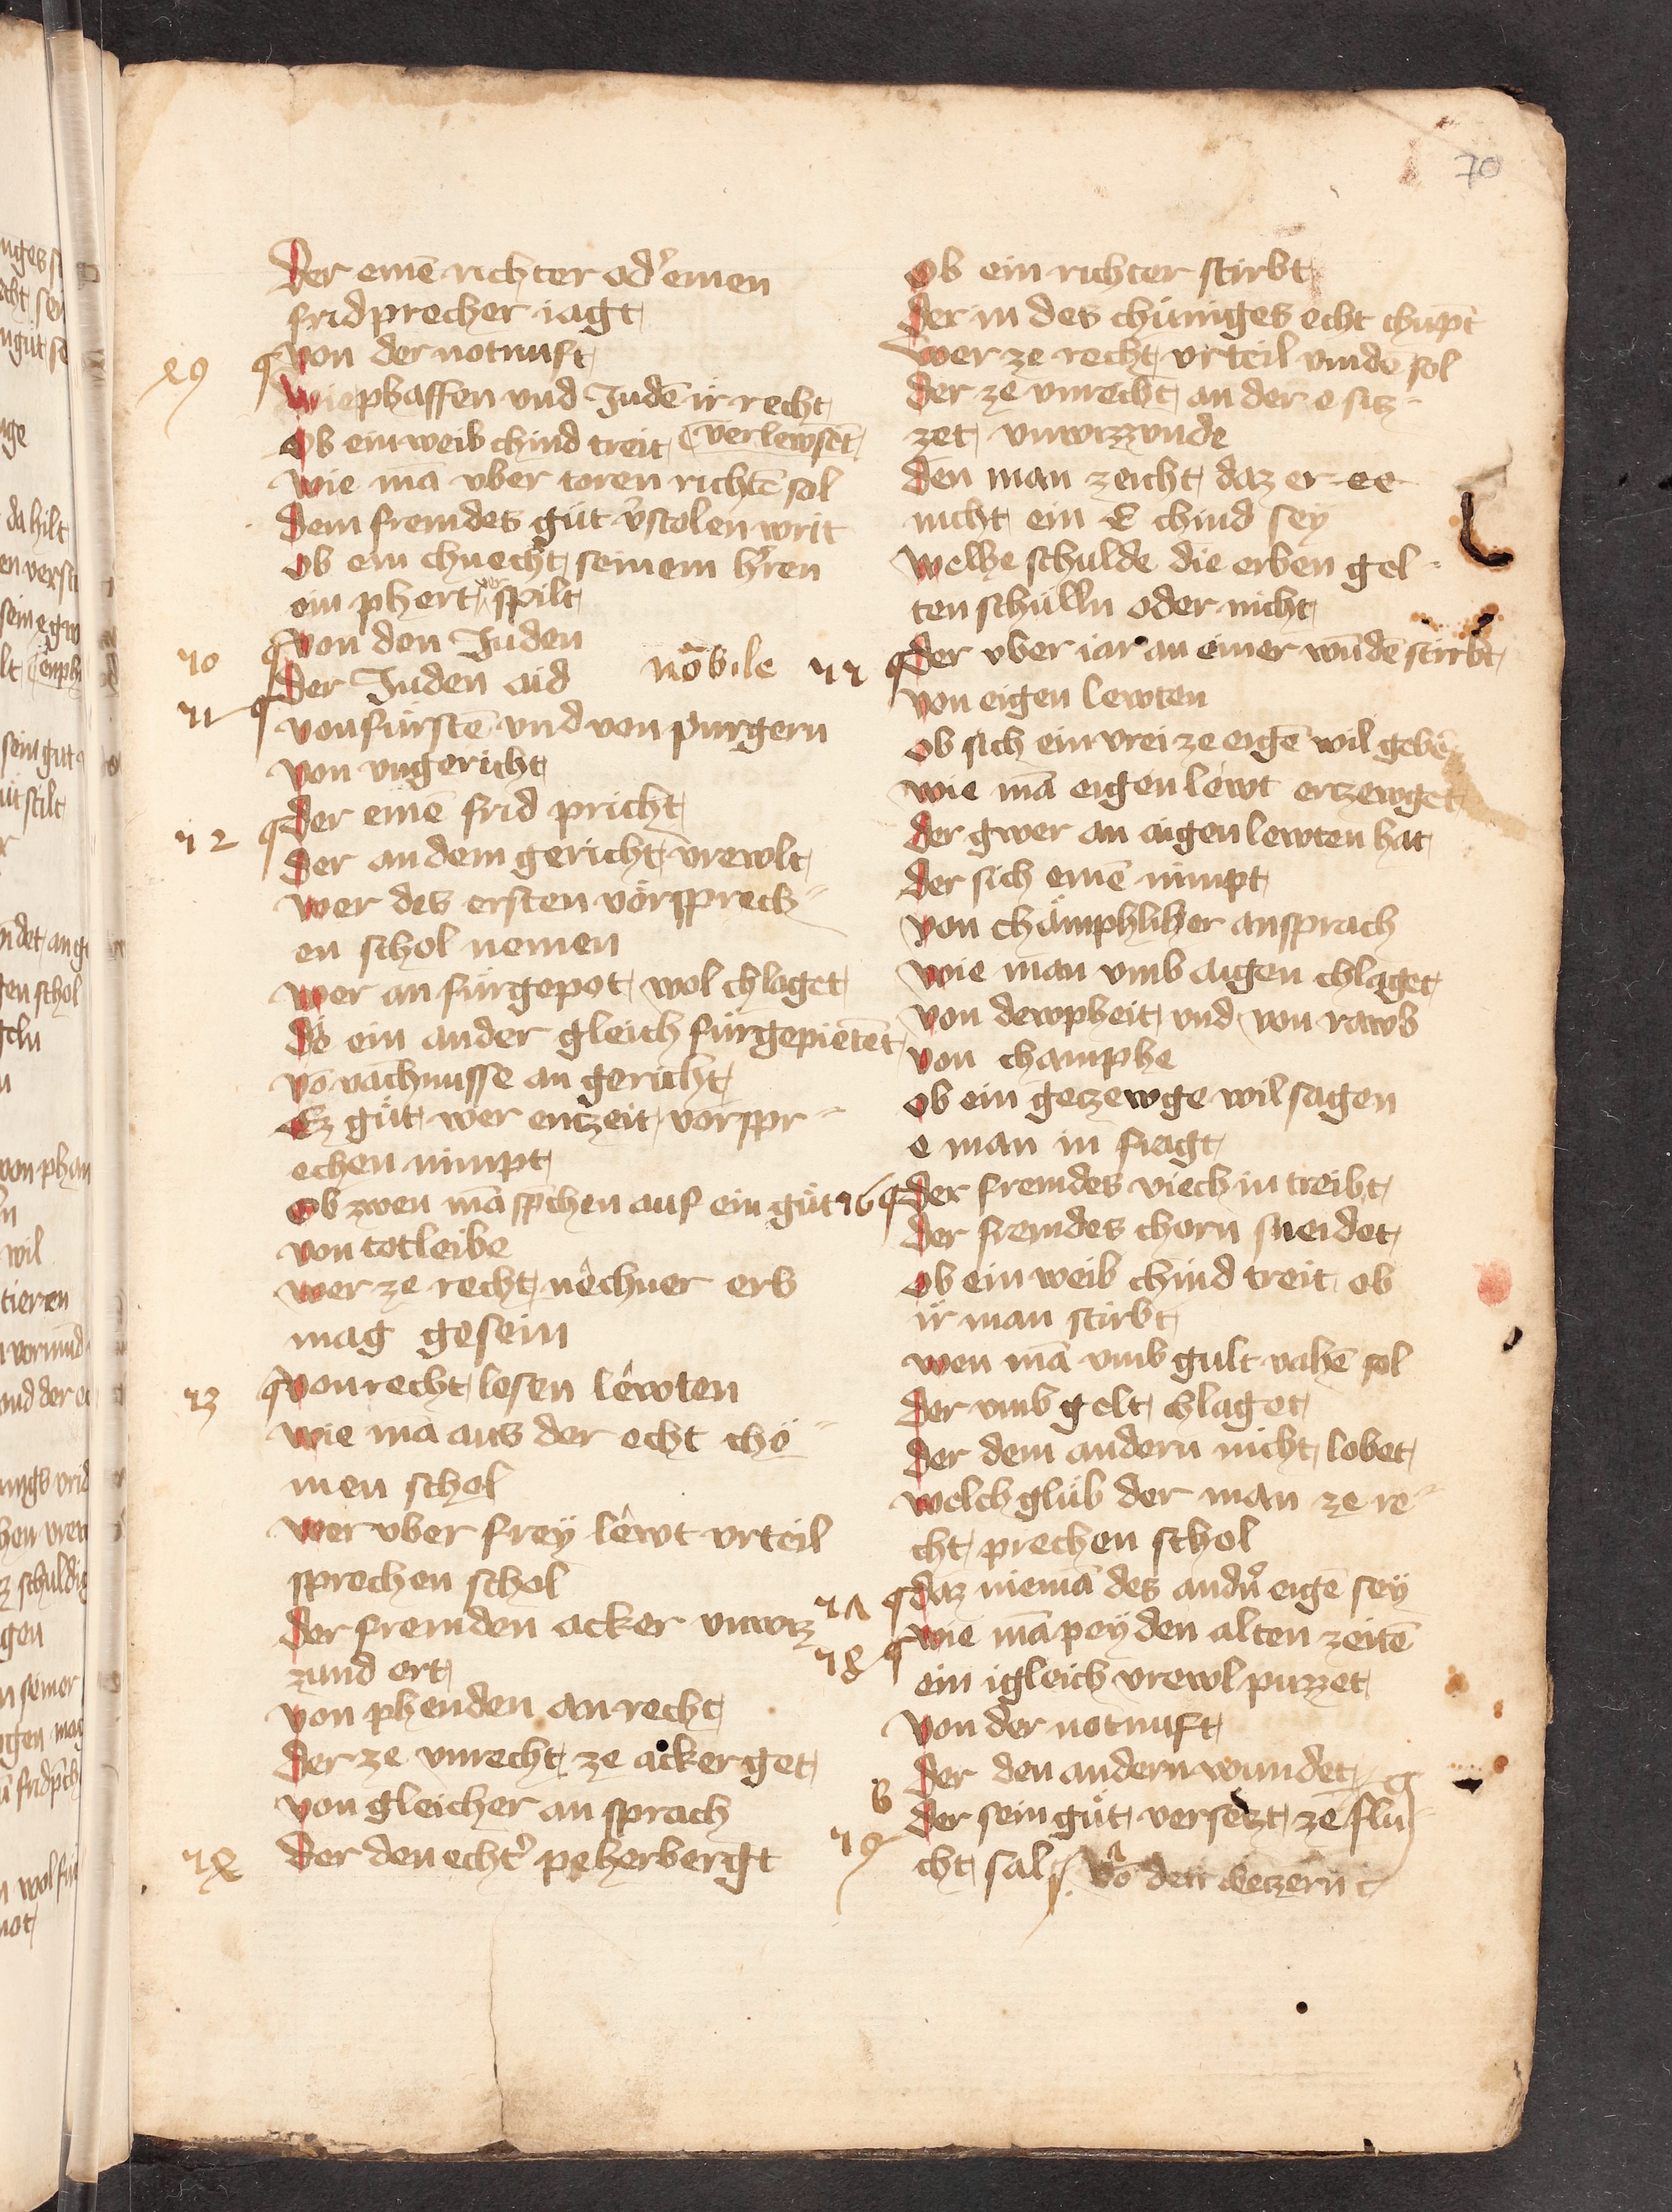 70
Der einē richter odˀ einen
fridprecher iagt
von der notnuft
Wie phaffen vnd Judē ir recht
Ob ein weib chind treit (verlewsēt
Wie mā vber toren richtē sol
Dem fremdes gůt v̓stolen wirt
Ob ein chnecht seinem hˀren
ein phert verspilt
von den Juden
70
Der Juden aid
nōbile
71
von fürstē vnd von purgern
von vngericht
Der einē frid pricht
72
Der an dem gericht vrewlt
Wer des ersten vörsprech
en schol nemen
Wer an fürgepot wol chlaget
Do ein ander gleich fürgepietent
võ vachnusse an gericht
Ez gůt wer entzeit vorspr
echen nimpt
Ob zwen mā spˀchen auf ein gůt
von totleibe
Wer ze recht nêchner erb
mag gesein
73
von recht lesen lêwten
Wie mā aus der echt chö
men schol
Wer vber freÿ lêwt vrteil
sprechen schol
Der fremden acker vnwiz
zund ert
von phenden an recht
Der ze vnrecht ze acker get
von gleicher an sprach
Der den echtˀ peherbergt
Ob ein richter stirbt
Der in des chüniges echt chūpt
Wer ze recht vrteil vinde sol
Der ze vnrecht an der e siz
zet vnwizzunde
Den man zeicht daz er ee
nicht ein E chind seÿ
Welhe schulde die erben gel
ten schülln oder nicht
Der vber iar an einer wūdē stirbt
von eigen lewten
Ob sich ein vrei ze eigē wil gebē
Wie mā eigen lêwt ertzewget
Der gwer an aigen lewten hat
Der sich einē nimpt
von chämphliher ansprach
Wie man vmb aigen chlaget
von dewpheit vnd von rawb
von champhe
Ob ein getzewge wil sagen
e man in fragt
76
Der fremdes viech in treibt
Der fremdes chorn sneidet
Ob ein weib chind treit ob
ir man stirbt
Wen mā vmb gult vahē sol
Der vmb gelt chlaget
Der dem andern nicht lobet
Welch glüb der man ze re
cht prechen schol
Daz niemā des andˀn eigē seÿ
Wie mā peÿ den alten zeitē
ein igleich vrewl puzzet
von der notnuft
Der den andern wundet
Der sein gůt versetzt ze flu
cht sal